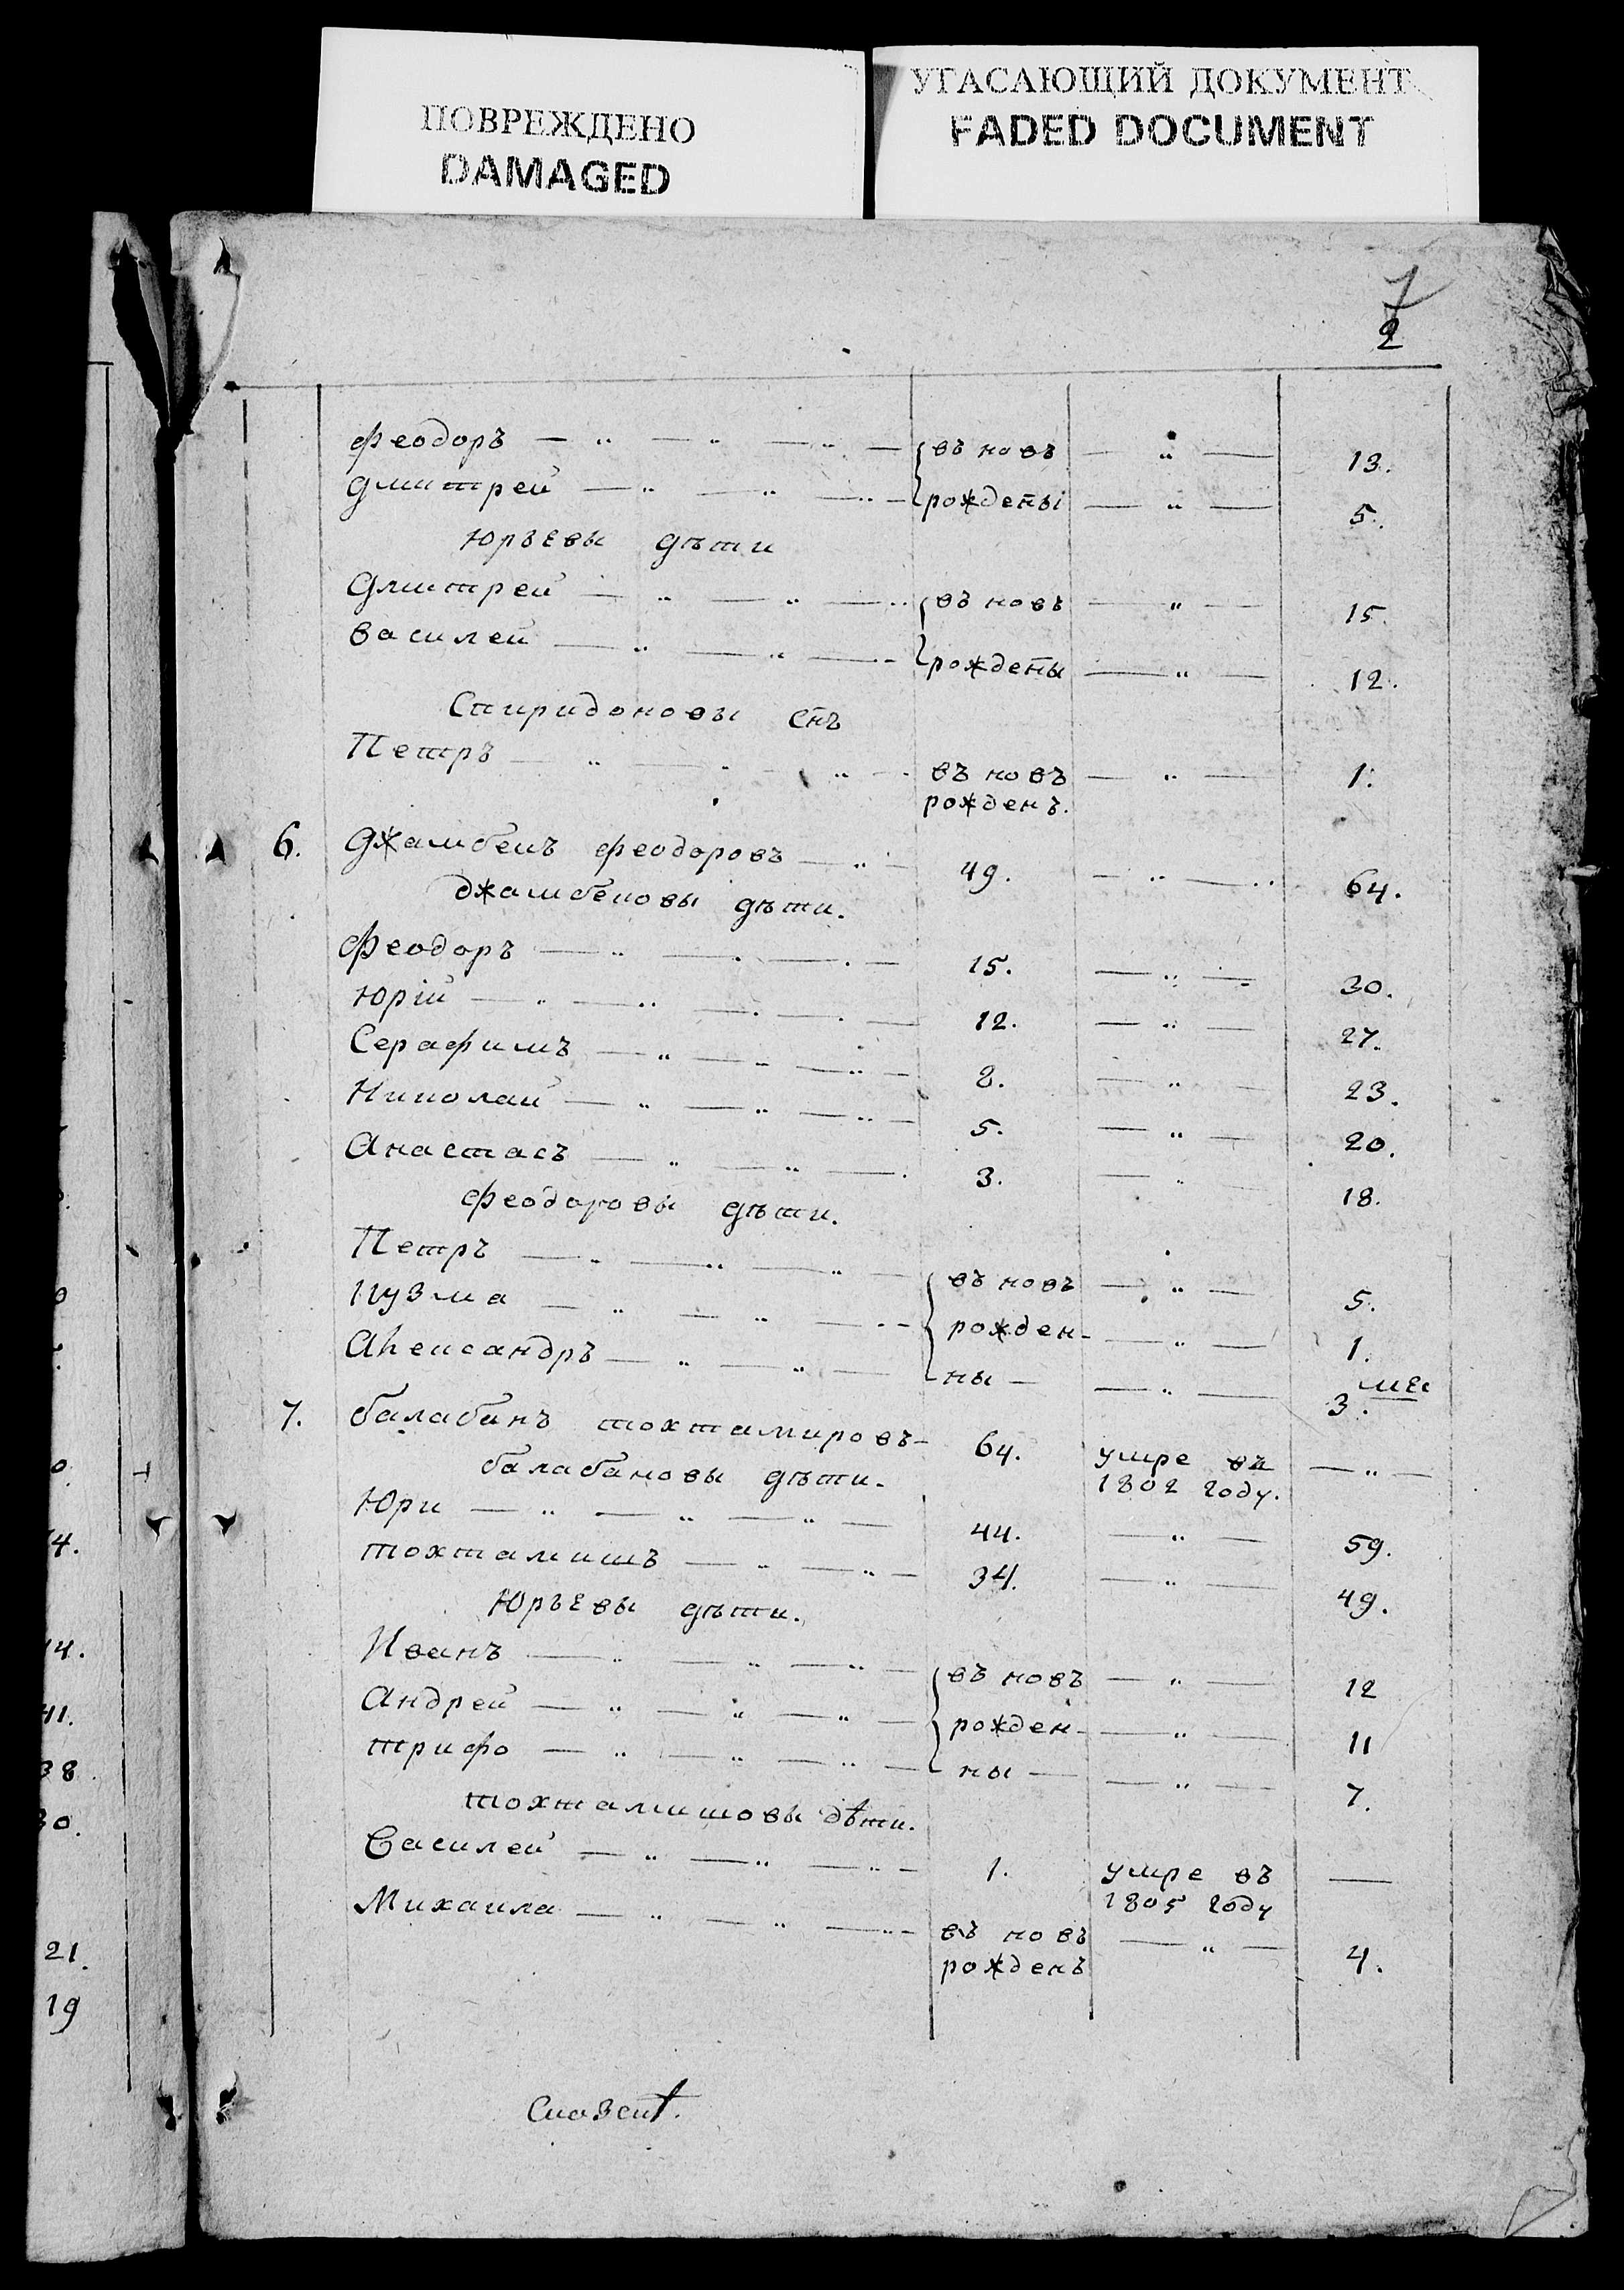 ПОВРЕЖДЕНО
DAMAGED
УГАСАЮЩИЙ ДОКУМЕНТ
FADED DOCUMENT
7
2
Феодоръ — „ — „ — „ — въ новъ — „ — 13.
Дмитрей — „ — „ — „ — рождены — „ — 5.
Юрьевы дѣти
Дмитрей — „ — „ — „ въ новъ — „ — 15.
Василей — „ — „ — „ — рождены — „ — 12.
Спиридоновы снъ
Петръ — „ — „ — „ — въ новъ — „ — 1.
рожденъ.
6. Джамбекъ Феодоровъ — „ — 49. — „ — „ 64.
Джамбековы дѣти.
Феодоръ — „ — „ — „ — 15. — „ — 30.
Юрій — „ — „ — „ — 12. — „ — 27.
Серафимъ — „ — „ — „ — 8. — „ — 23.
Николай — „ — „ — „ — 5. — „ — 20.
Анастасъ — „ — „ — 3. — „ — 18.
Феодоровы дѣти.
Петръ — „ — „ — „ — въ новъ — „ — 5.
Кузма — „ — „ — „ — рожден- — „ — 1.
Александръ — „ — „ — ны — — „ — 3. ме
7. Балабанъ Тохтамировъ — 64. умре въ — „ —
1802 году.
Балабановы дѣти.
Юри — „ — „ — „ — 44. — „ — 59.
Тохтамишъ — „ — „ — 34. — „ — 49.
Юрьевы дѣти.
Иванъ — „ — „ — „ — въ новъ — „ — 12
Андрей — „ — „ — „ — рожден- — „ — 11
Трифо — „ — „ — „ — ны — — „ — 7.
Тохтамишовы дѣти.
Василей — „ — „ — „ — 1. умре въ —
1805 году
Михаила — „ — „ — „ — въ новъ — „ — 4.
рожденъ
0
4.
14.
41.
38
30.
21.
19